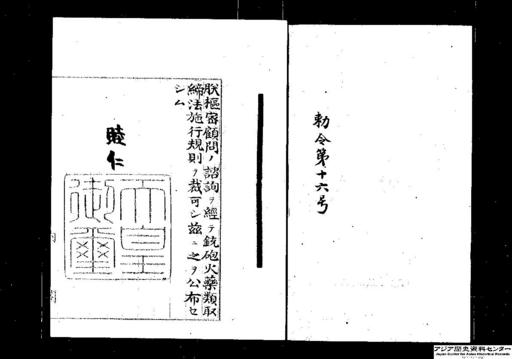 勅令第十六号
朕枢密顧問ノ諮詢ヲ経テ銃砲火薬類取
締法施行規則ヲ裁可シ茲ニ之ヲ公布セ
シム
睦仁
天皇
御璽
アジア歴史資料センター
Japan Center for Asian Historical Records